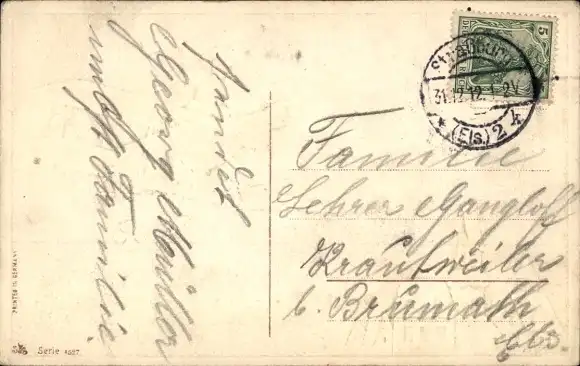 sendet
Georg Müller
und Familie
PRINTED IN GERMANY
Serie 4527.
5
Straßburg
31.12.12.1-2V
* (Els) 2 k
Familie
Lehrer Gangloff
Krautweiler
b. Brumath
Els.